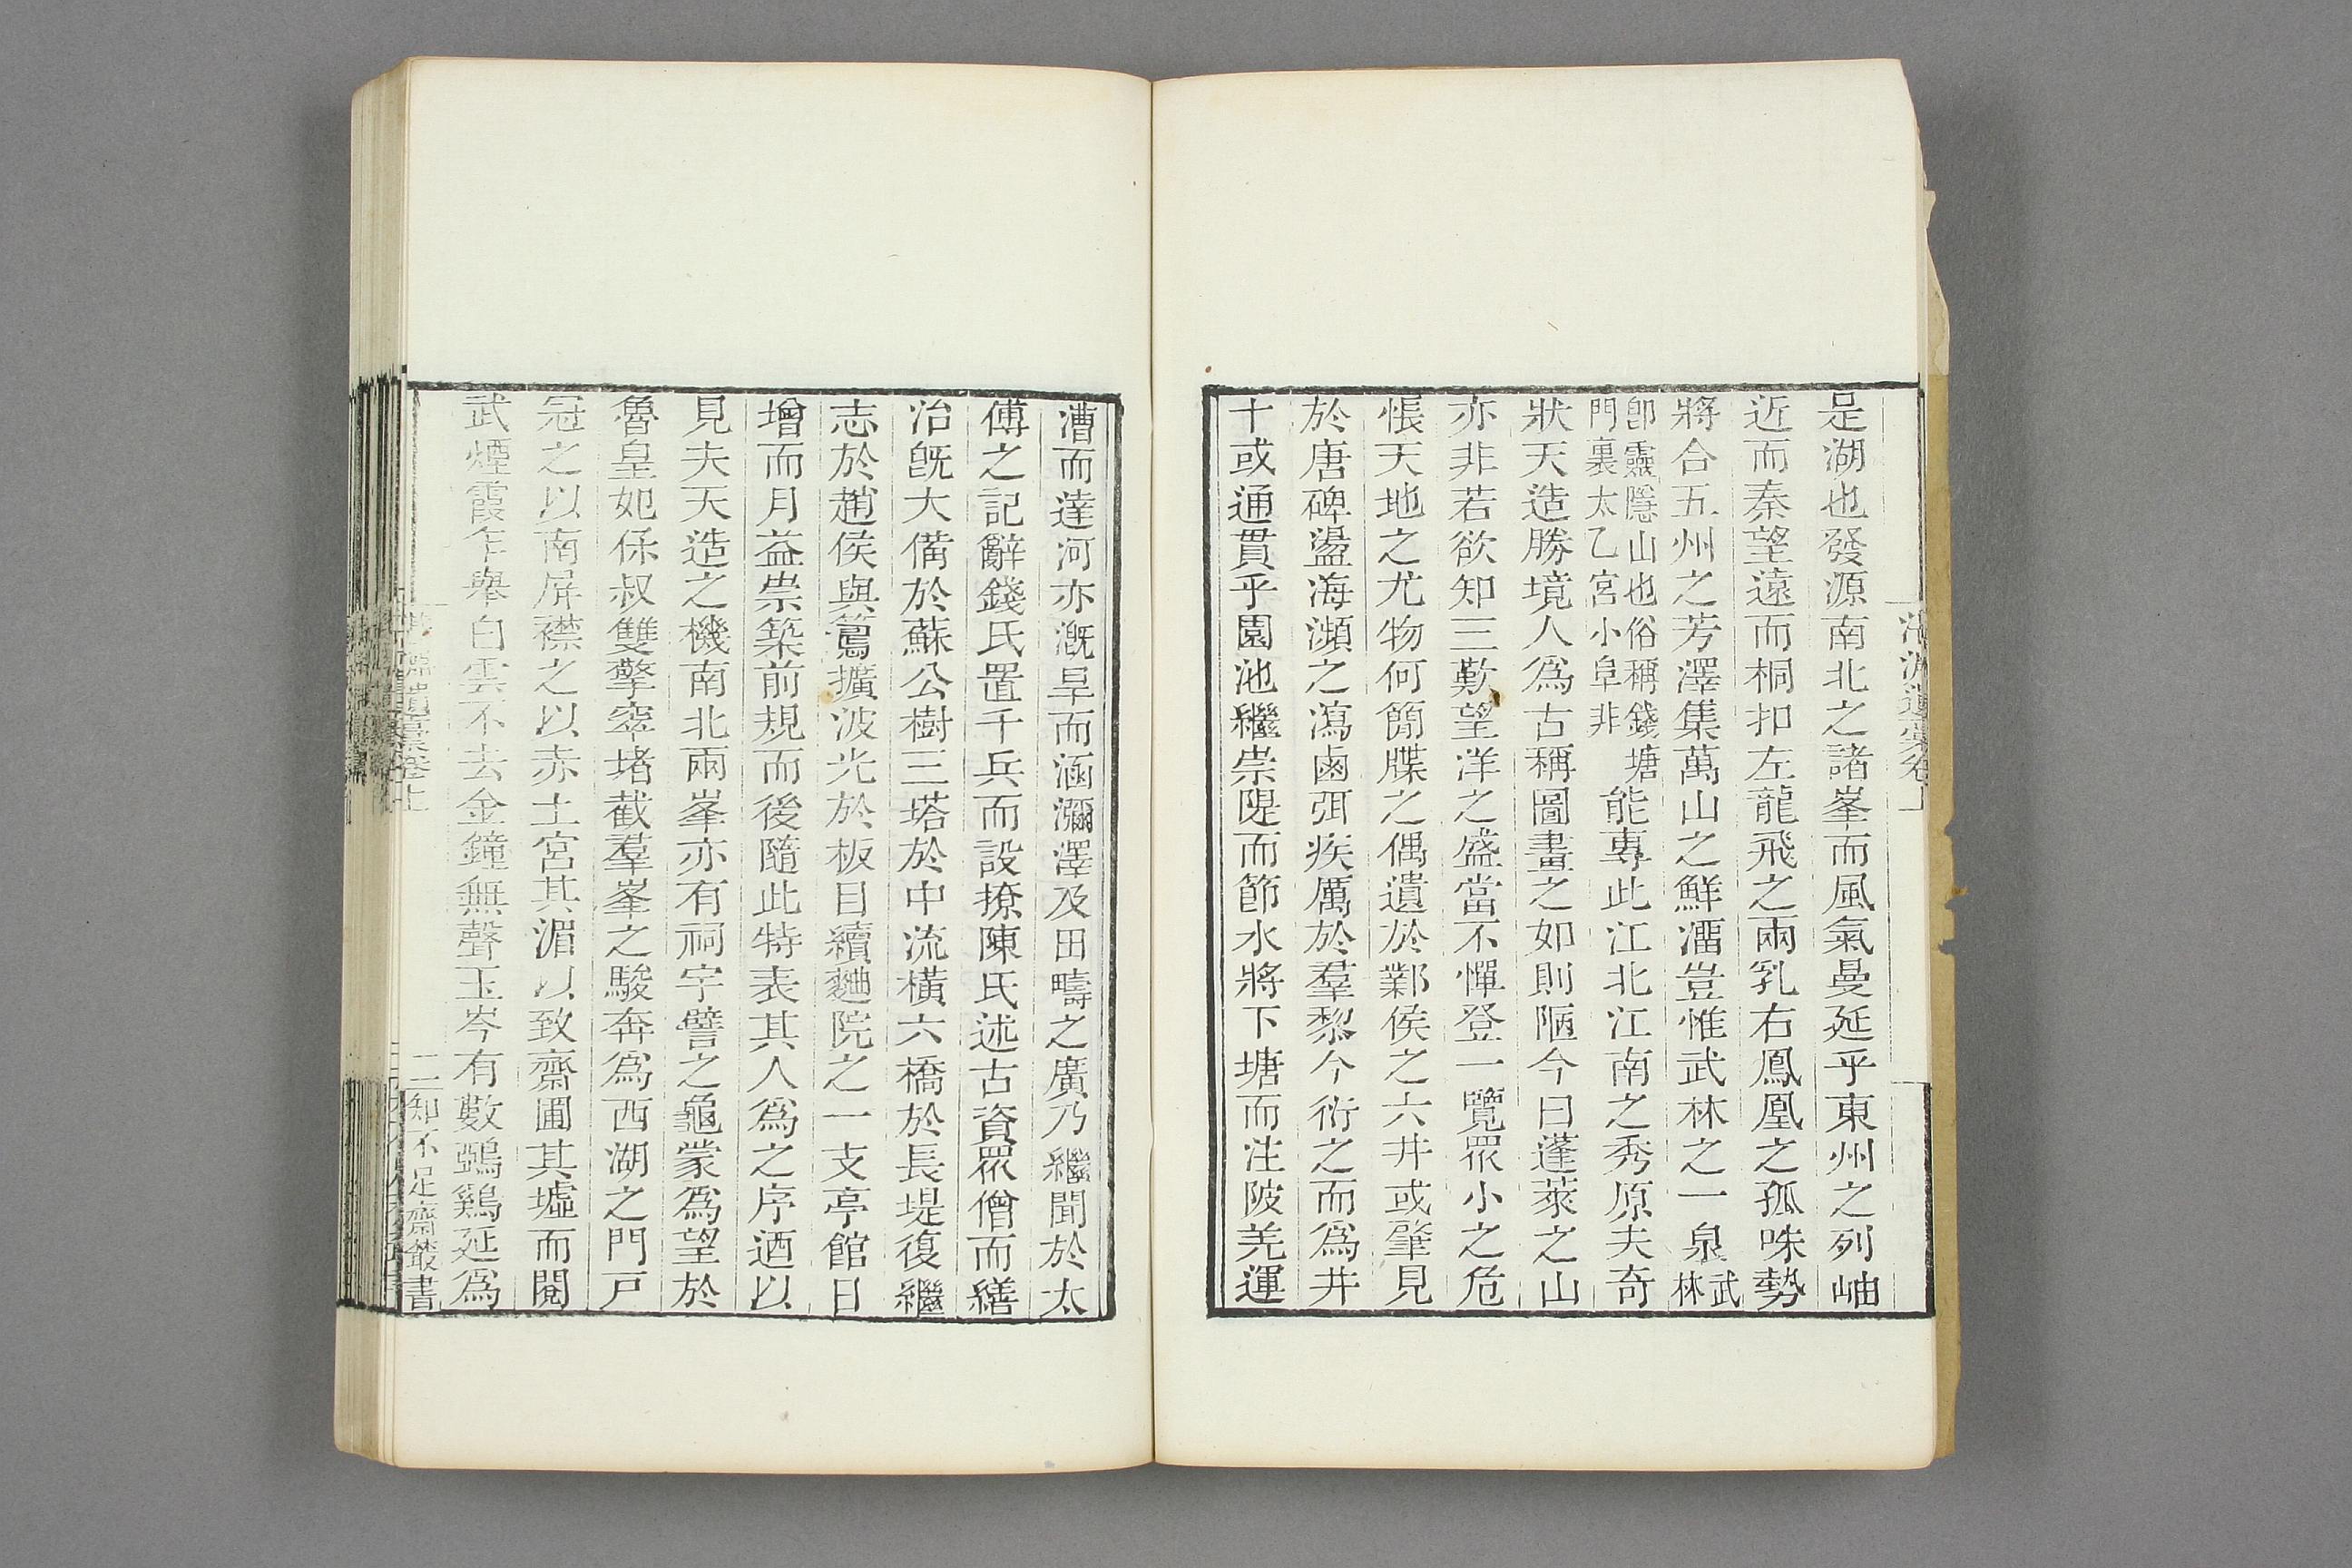 足湖也發源南北之諸峯而風氣曼延乎東州之列岫
近而秦望遠而桐扣左龍飛之兩乳右鳳凰之孤咮勢
將合五州之芳澤集萬山之鮮澑豈惟武林之一泉武林
卽靈隱山也俗稱錢塘門裏太乙宮小阜非能專此江北江南之秀原夫奇
狀天造勝境人爲古稱圖畫之如則陋今曰蓬萊之山
亦非若欲知三歎望洋之盛當不憚登一覽眾小之危
悵天地之尤物何簡牒之偶遺於鄴侯之六井或肇見
於唐碑盪海瀕之瀉鹵弭疾厲於羣黎今衍之而爲井
十或通貫乎園池繼崇隄而節水將下塘而注陂羌運
漕而達河亦溉旱而涵瀰澤及田疇之廣乃繼聞於太
傅之記辭錢氏置千兵而設撩陳氏述古資眾僧而繕
治旣大備於蘇公樹三塔於中流橫六橋於長堤復繼
志於趙侯與簹擴波光於板目續麯院之一支亭館日
增而月益祟築前規而後隨此特表其人爲之序迺以
見夫天造之機南北兩峯亦有祠宇譬之龜蒙爲望於
魯皇妃保叔雙擎窣堵截羣峯之駿奔爲西湖之門戸
冠之以南屏襟之以赤土宮其湄以致齋圃其墟而閱
武煙霞乍舉白雲不去金鐘無聲玉岑有數鵶鷄延爲
二
知不足齋叢書